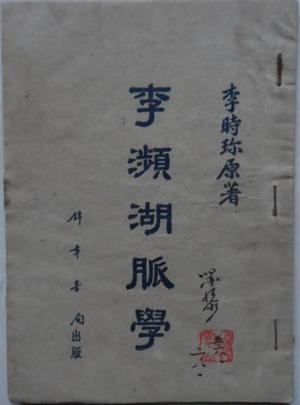 李時珍原著
李瀕湖脈學
錦章書局出版